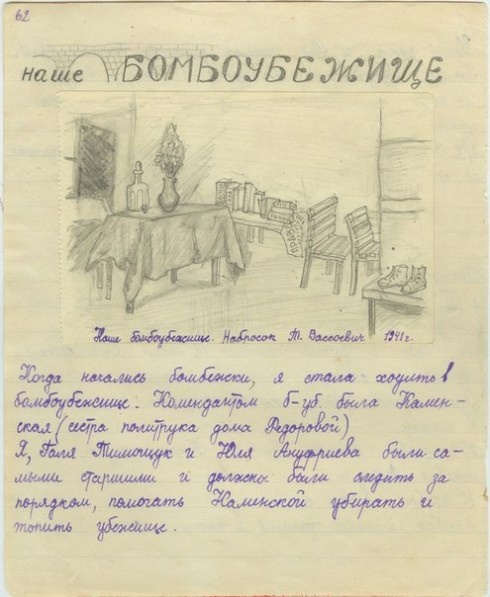 62
наше БОМБОУБЕЖИЩЕ
Наше бомбоубежище. Набросок Т. Вассоевич 1941 г.
Когда начались бомбежки, я стала ходить в
бомбоубежище. Комендантом б-уб. была Камен-
ская (сестра политрука дома Федоровой)
Я, Галя Тимощук и Юля Андриева были са-
мыми старшими и должны были следить за
порядком, помогать Каменской убирать и
топить убежище.